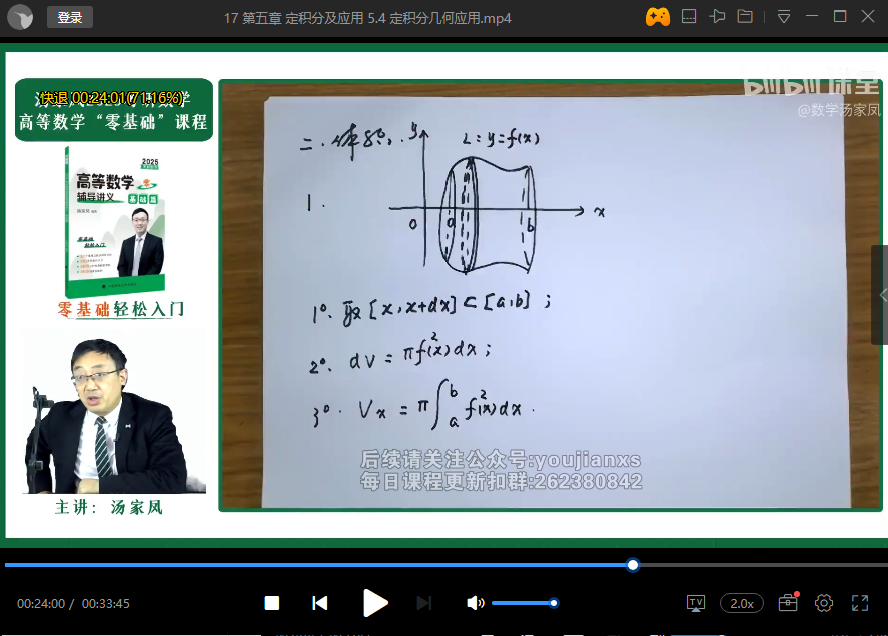 登录
17 第五章 定积分及应用 5.4 定积分几何应用.mp4
快退 00:24:01(71.16%)
高等数学“零基础”课程
2025
高等数学
辅导讲义
基础篇
零基础轻松入门
主讲：汤家凤
@数学汤家凤
二.体积.
y
L:y=f(x)
1.
0
a
b
x
1°. 取[x,x+dx]⊂[a,b];
2°. dV=πf²(x)dx;
3°. Vx=π∫ₐᵇf²(x)dx.
后续请关注公众号:youjianxs
每日课程更新扣群:262380842
00:24:00 / 00:33:45
TV
2.0x